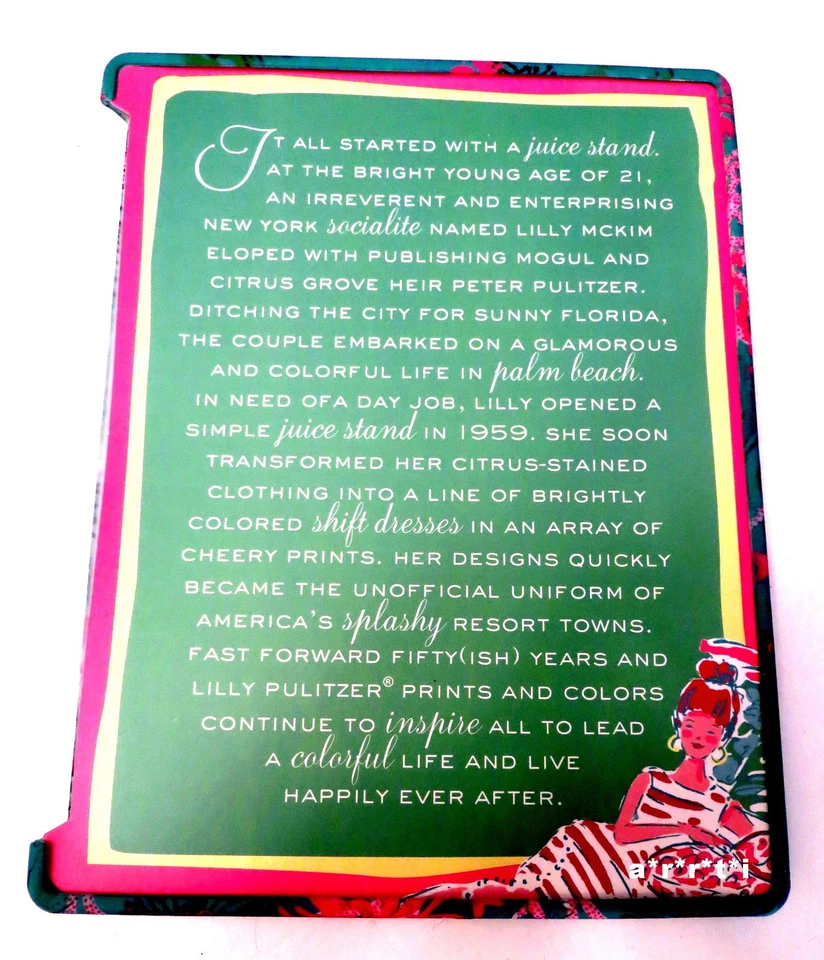 IT ALL STARTED WITH A juice stand.
AT THE BRIGHT YOUNG AGE OF 21,
AN IRREVERENT AND ENTERPRISING
NEW YORK socialite NAMED LILLY MCKIM
ELOPED WITH PUBLISHING MOGUL AND
CITRUS GROVE HEIR PETER PULITZER.
DITCHING THE CITY FOR SUNNY FLORIDA,
THE COUPLE EMBARKED ON A GLAMOROUS
AND COLORFUL LIFE IN palm beach.
IN NEED OFA DAY JOB, LILLY OPENED A
SIMPLE juice stand IN 1959. SHE SOON
TRANSFORMED HER CITRUS-STAINED
CLOTHING INTO A LINE OF BRIGHTLY
COLORED shift dresses IN AN ARRAY OF
CHEERY PRINTS. HER DESIGNS QUICKLY
BECAME THE UNOFFICIAL UNIFORM OF
AMERICA'S splashy RESORT TOWNS.
FAST FORWARD FIFTY(ISH) YEARS AND
LILLY PULITZER® PRINTS AND COLORS
CONTINUE TO inspire ALL TO LEAD
A colorful LIFE AND LIVE
HAPPILY EVER AFTER.
a*r*r*t*i